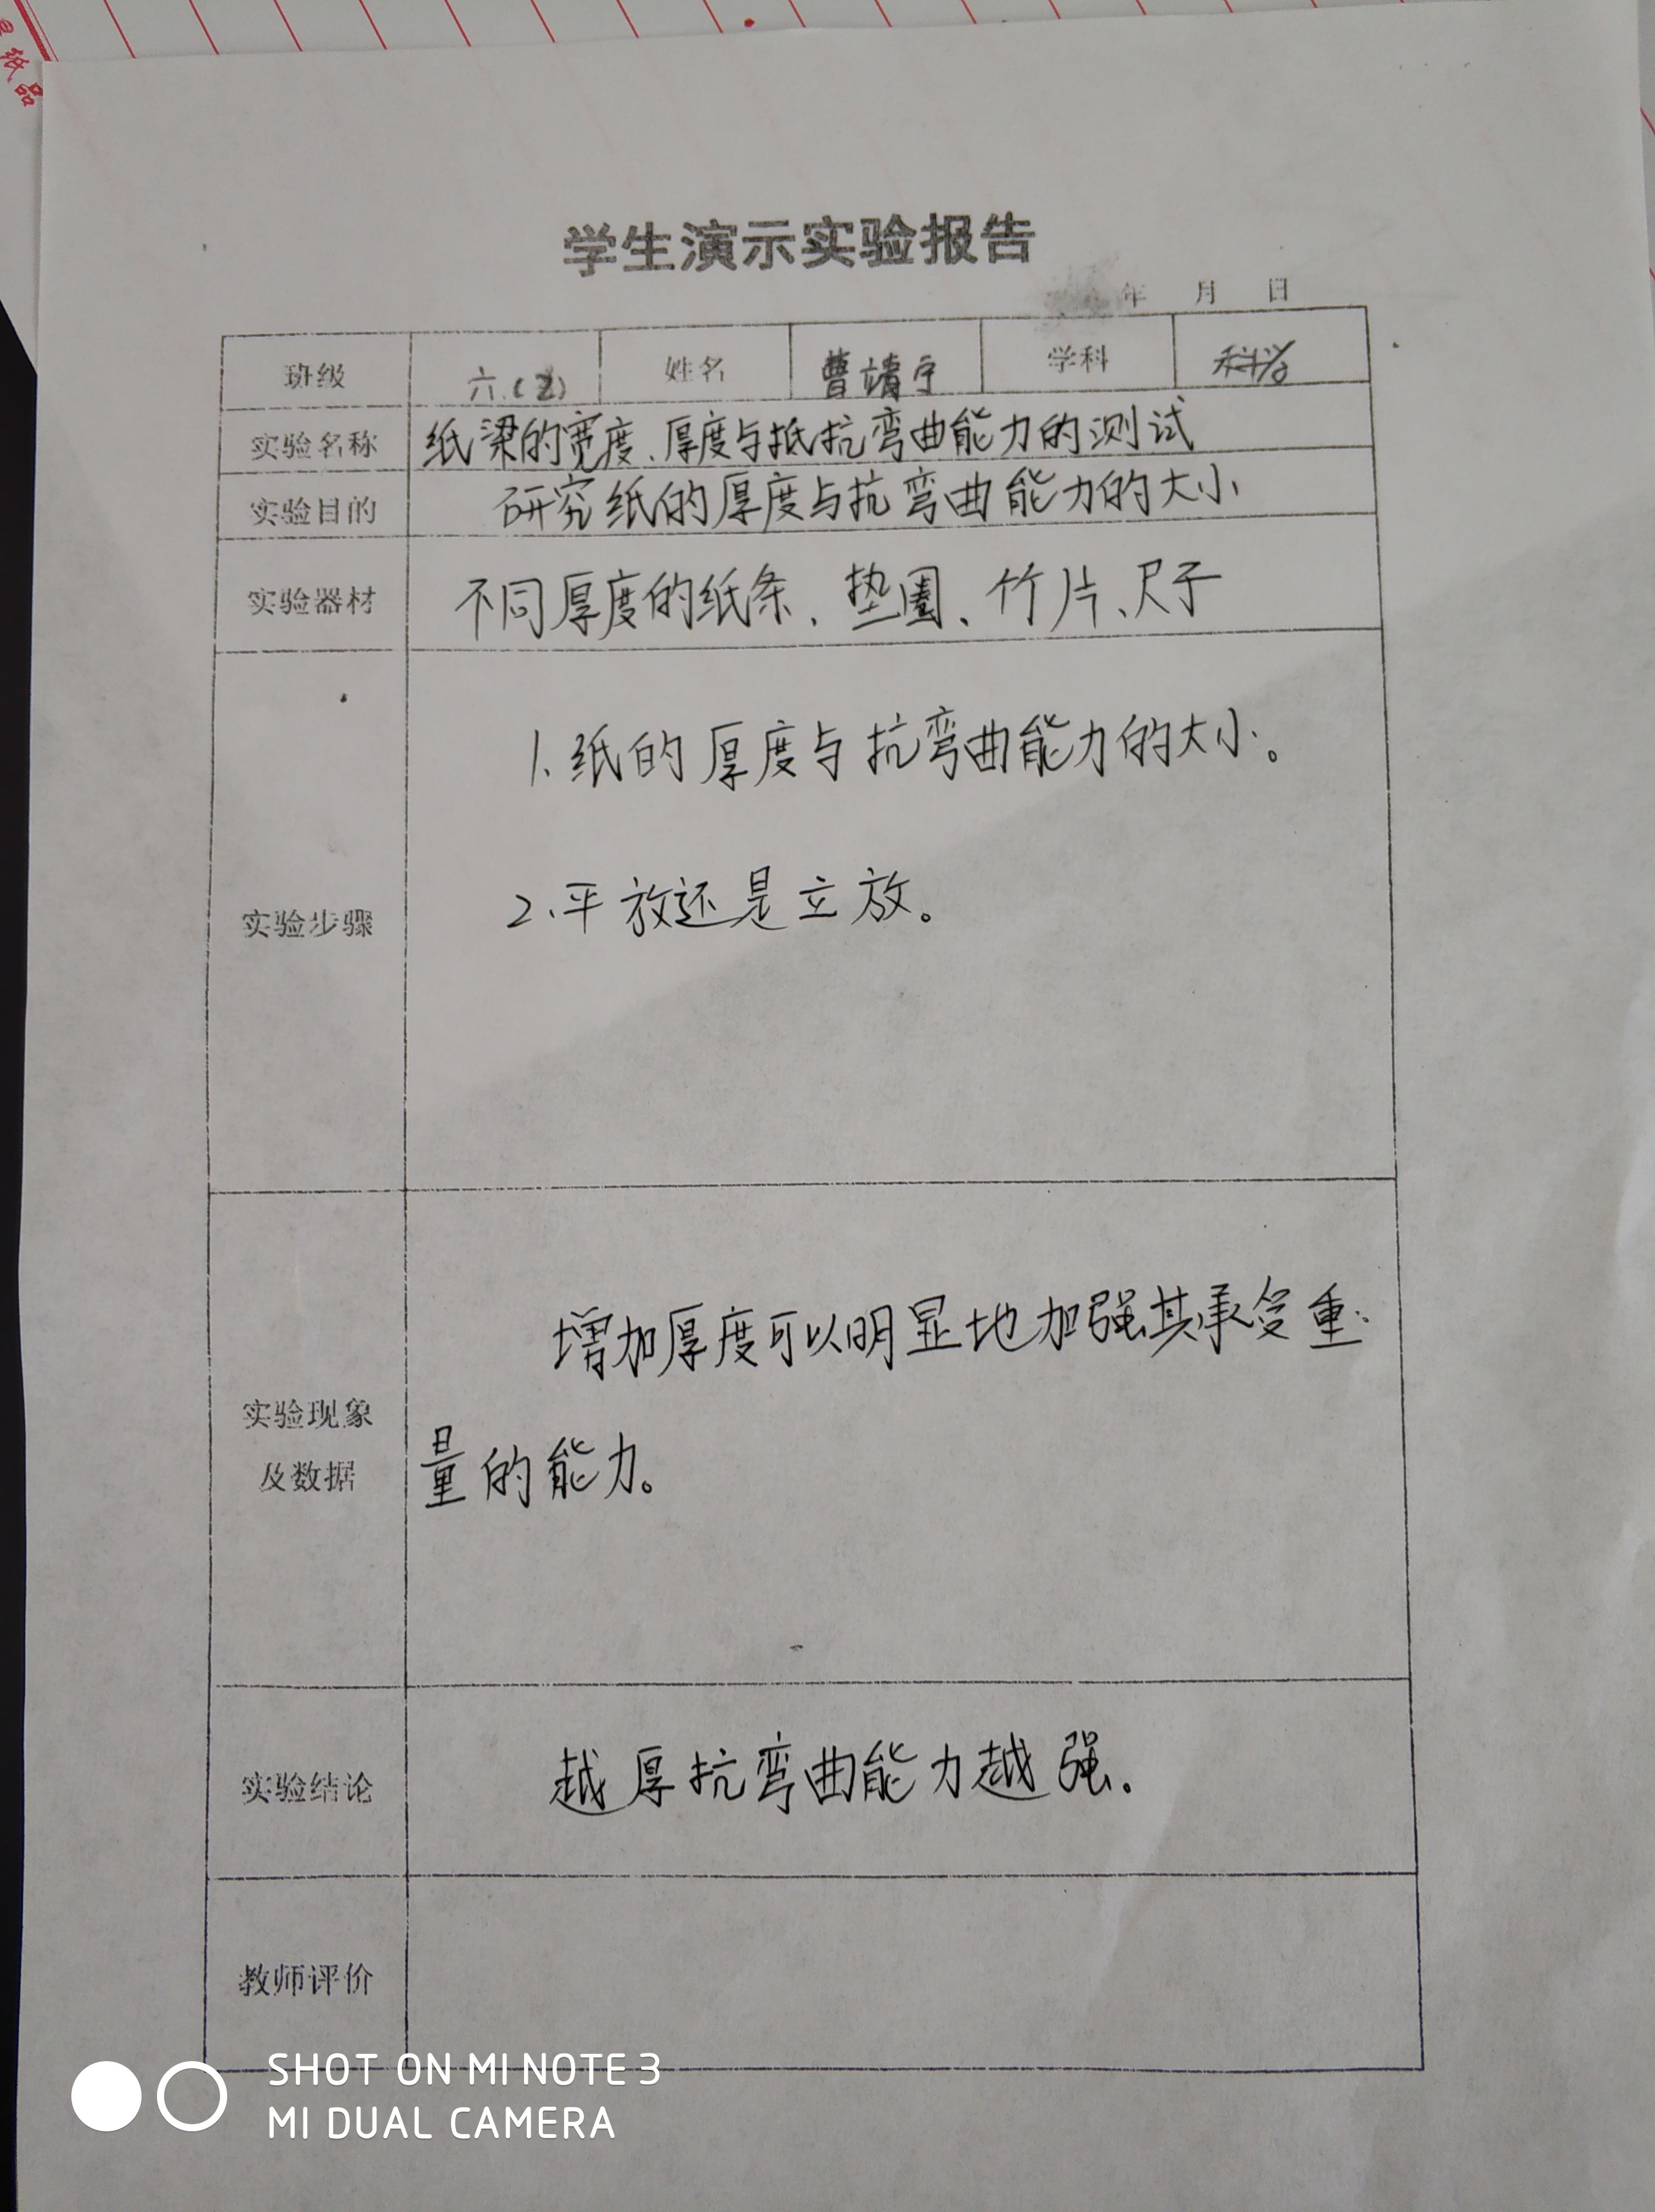 纸品
学生演示实验报告
年 月 日
班级 六.(2) 姓名 曹靖宇 学科 科学
实验名称 纸梁的宽度、厚度与抵抗弯曲能力的测试
实验目的 研究纸的厚度与抗弯曲能力的大小
实验器材 不同厚度的纸条、垫圈、竹片、尺子
1、纸的厚度与抗弯曲能力的大小。
2、平放还是立放。
实验步骤
增加厚度可以明显地加强其承受重
量的能力。
实验现象
及数据
实验结论 越厚抗弯曲能力越强.
教师评价
SHOT ON MI NOTE 3
MI DUAL CAMERA